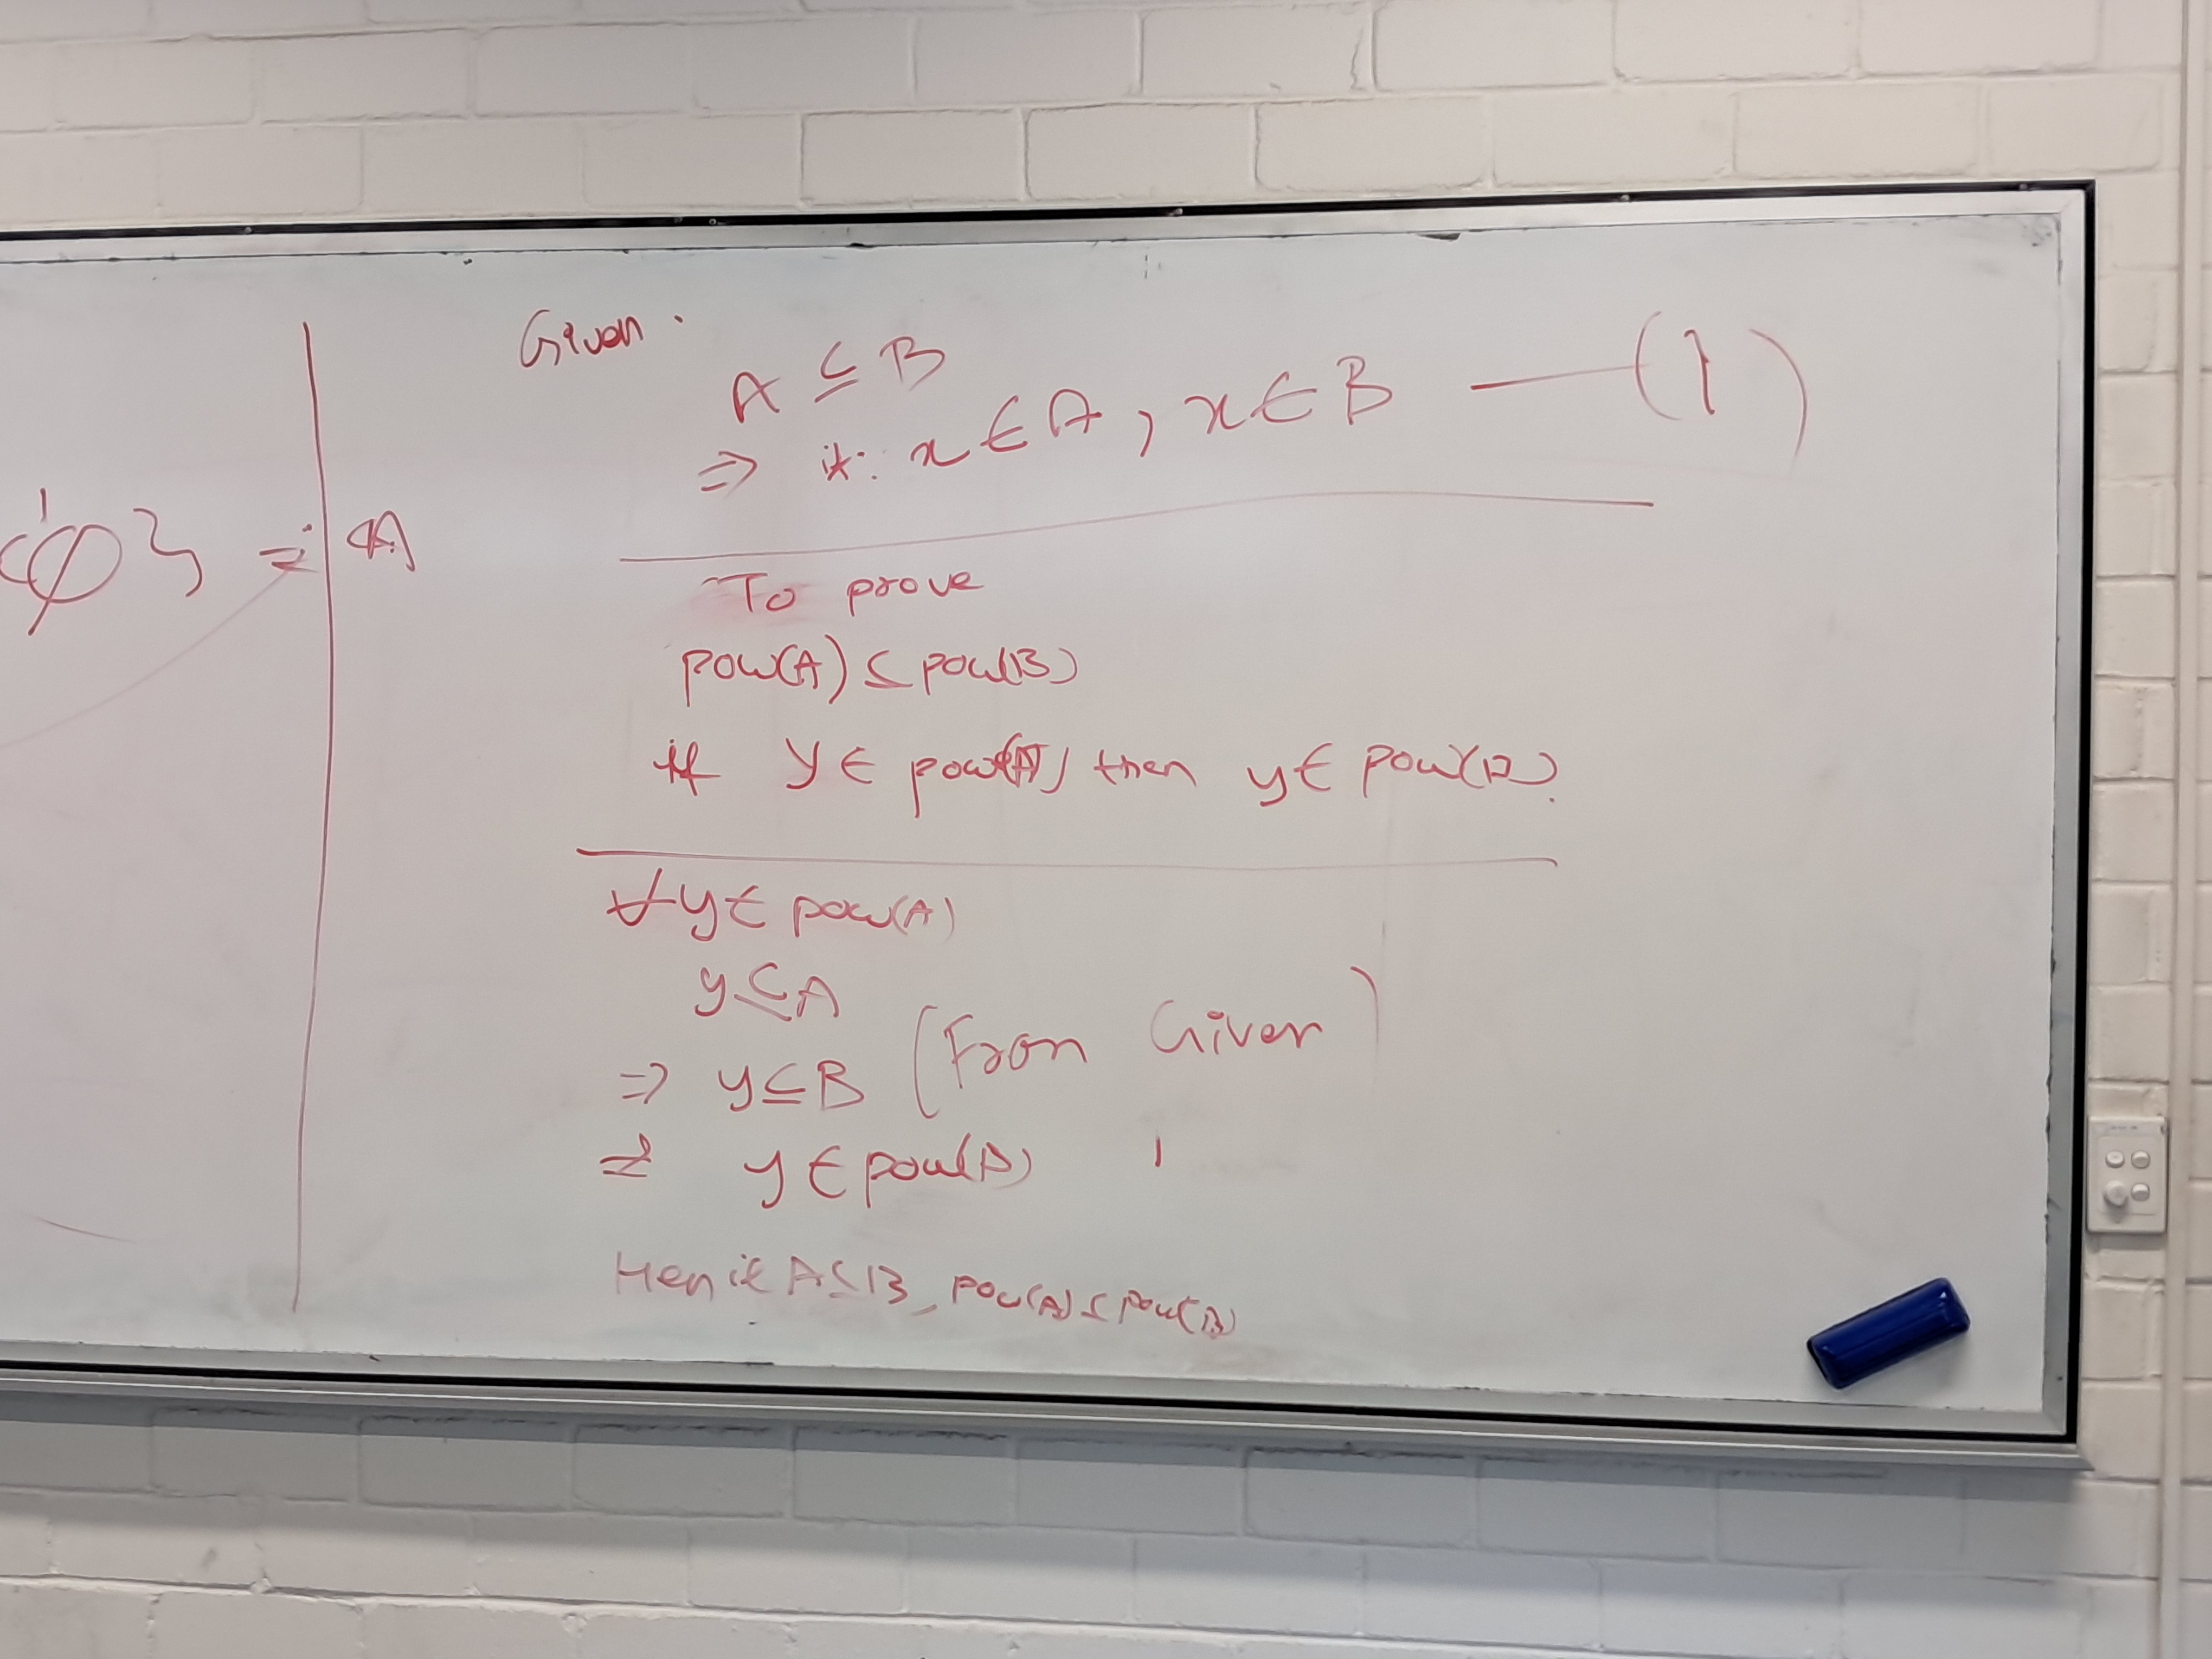 Given.
A ⊆ B
⇒ if: x ∈ A, x ∈ B — (1)
{φ} = A
To prove
pow(A) ⊆ pow(B)
if y ∈ pow(A) then y ∈ pow(B).
∀ y ∈ pow(A)
y ⊆ A
⇒ y ⊆ B (From Given)
⇒ y ∈ pow(B)
Hen if A ⊆ B, pow(A) ⊆ pow(B)